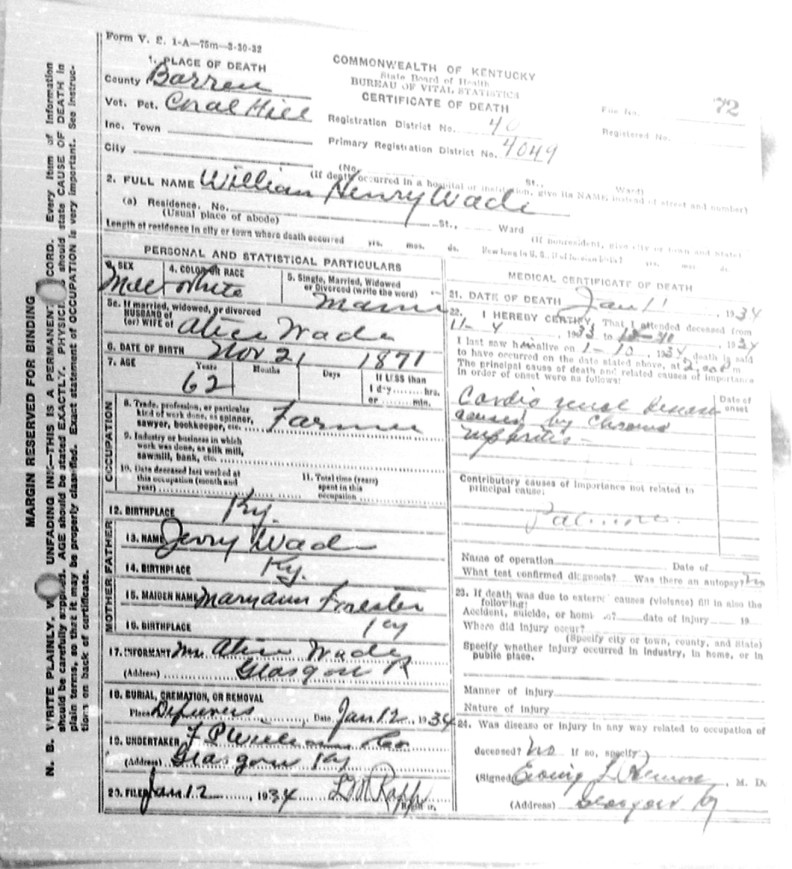 MARGIN RESERVED FOR BINDING
N. B. WRITE PLAINLY, UNFADING INK—THIS IS A PERMANENT CORD. Every item of information
should be carefully supplied. AGE should be stated EXACTLY. PHYSICI should state CAUSE OF DEATH in
plain terms, so that it may be properly classified. Exact statement of OCCUPATION is very important. See instruc-
tions on back of certificate.
Form V. S. 1-A—75m—3-30-32
COMMONWEALTH OF KENTUCKY
State Board of Health
BUREAU OF VITAL STATISTICS
CERTIFICATE OF DEATH
File No. 72
Registered No.
1. PLACE OF DEATH
County Barren
Vot. Pct. Coral Hill
Registration District No. 40
Inc. Town
Primary Registration District No. 4049
City
(No. St., Ward)
(If death occurred in a hospital or institution, give its NAME instead of street and number)
2. FULL NAME William Henry Wade
(a) Residence, No. St., Ward
(Usual place of abode) (If nonresident, give city or town and state)
Length of residence in city or town where death occurred yrs. mos. ds. How long in U. S., if of foreign birth? yrs. mos. ds.
PERSONAL AND STATISTICAL PARTICULARS
3. SEX 4. COLOR OR RACE 5. Single, Married, Widowed
or Divorced (write the word)
white
5a. If married, widowed, or divorced
HUSBAND of
(or) WIFE of Alice Wade
6. DATE OF BIRTH Nov 21 1871
7. AGE Years Months Days If LESS than
62 1 day hrs.
or min.
OCCUPATION
8. Trade, profession, or particular
kind of work done, as spinner,
sawyer, bookkeeper, etc. Farmer
9. Industry or business in which
work was done, as silk mill,
sawmill, bank, etc.
10. Date deceased last worked at
this occupation (month and
year)
11. Total time (years)
spent in this
occupation
12. BIRTHPLACE Ky.
FATHER
13. NAME Jerry Wade
14. BIRTHPLACE Ky.
MOTHER
15. MAIDEN NAME Maryann
16. BIRTHPLACE Ky
17. INFORMANT Alice Wade
(Address) Glasgow R
18. BURIAL, CREMATION, OR REMOVAL
Place Date Jan 12 1934
19. UNDERTAKER Co
(Address) Glasgow Ky
20. FILED Jan 12, 1934
MEDICAL CERTIFICATE OF DEATH
21. DATE OF DEATH Jan 11 1934
22. I HEREBY CERTIFY, That I attended deceased from
11-4 1933 to
I last saw h alive on 1-10, 1934, death is said
to have occurred on the date stated above, at 2:00 P m
The principal cause of death and related causes of importance
in order of onset were as follows:
Date of
onset
Cardio renal disease
caused by Chronic
nephritis
Contributory causes of importance not related to
principal cause:
Name of operation Date of
What test confirmed diagnosis? Was there an autopsy? No
23. If death was due to extern causes (violence) fill in also the
following:
Accident, suicide, or homi date of injury 19
Where did injury occur?
(Specify city or town, county, and State)
Specify whether injury occurred in industry, in home, or in
public place.
Manner of injury
Nature of injury
24. Was disease or injury in any way related to occupation of
deceased? No If so, specify
(Signed) M. D.
(Address) Glasgow Ky